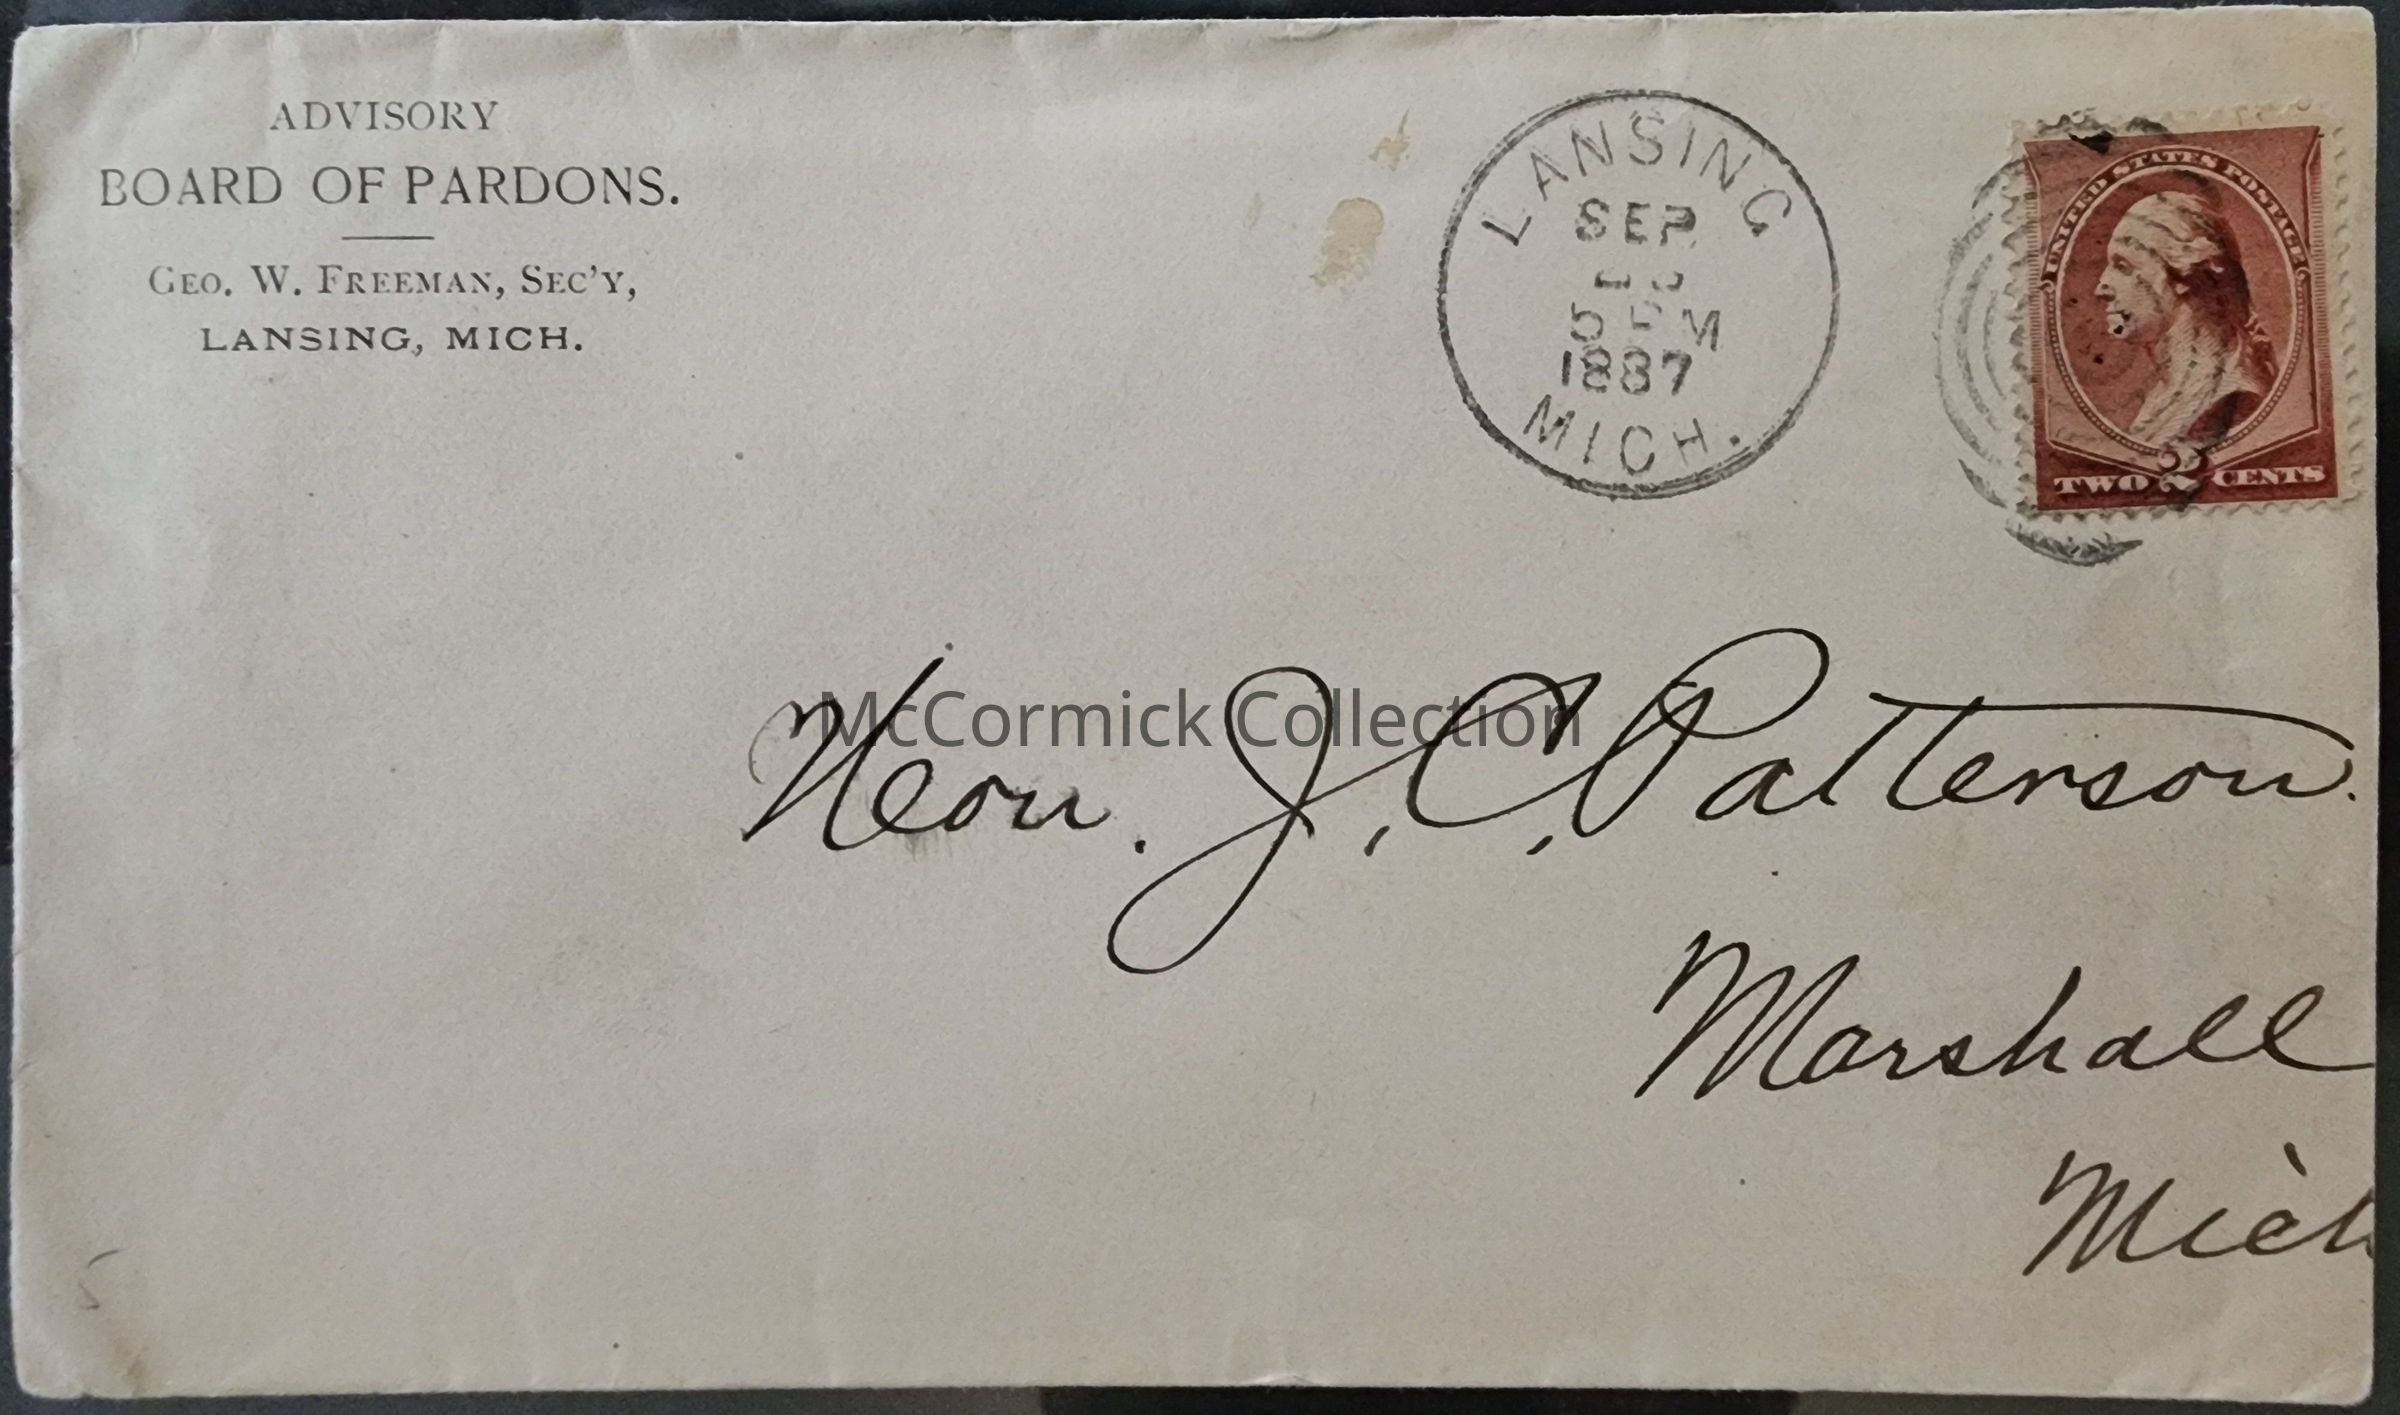 ADVISORY
BOARD OF PARDONS.
GEO. W. FREEMAN, SEC'Y,
LANSING, MICH.
LANSING
SEP
5 PM
1887
MICH.
UNITED STATES POSTAGE
TWO 2 CENTS
Hon. J. C. Patterson.
McCormick Collection
Marshall
Mich
5